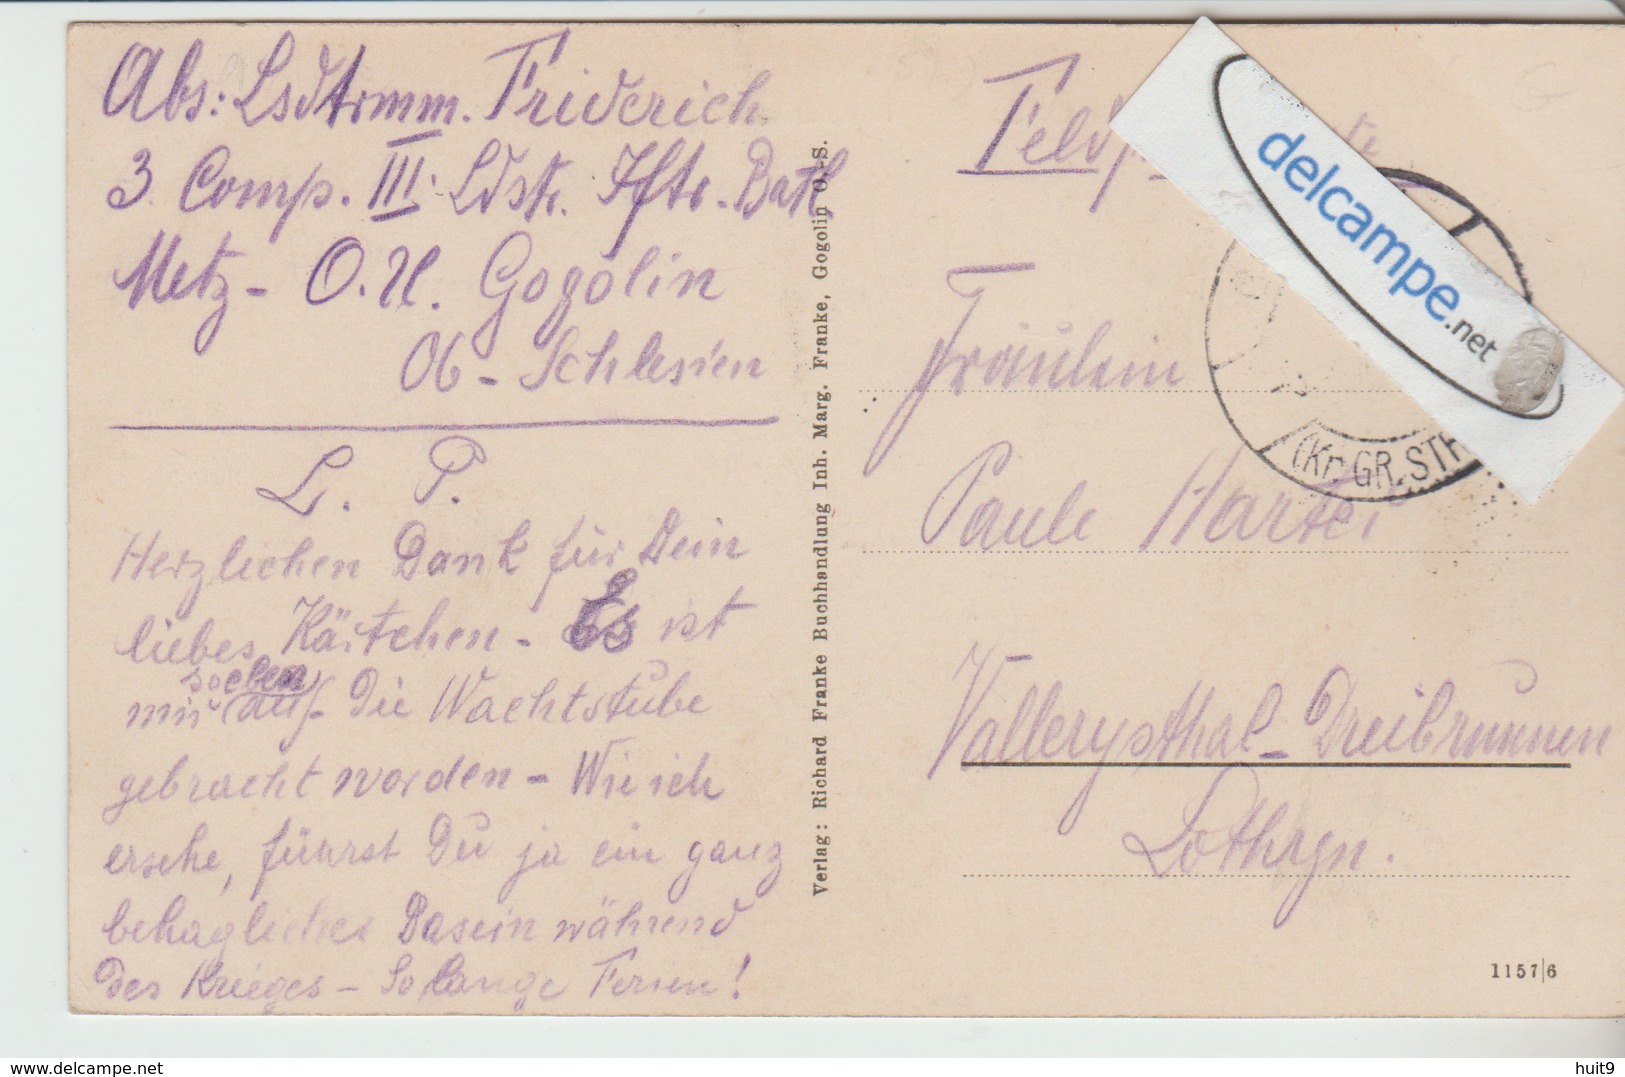 Abs: Lsdtrmm. Friderich
3. Comp. III. Ldstr. Iftr. Batl.
Metz - O. U. Gogolin
Ob - Schlesien
L. P.
Herzlichen Dank für Dein
liebes Kärtchen - Es ist
mir soeben auf die Wachtstube
gebracht worden - Wie ich
ersehe, führst Du ja ein ganz
behagliches Dasein während
des Krieges - So lange Ferien!
Verlag: Richard Franke Buchhandlung Inh. Marg. Franke, Gogolin O.-S.
Fräulein
Paule
Vallerysthal - Dreibrunnen
Lothrgn.
(Kr. GR. STR
1157/6
delcampe.net
delcampe.net
huit9